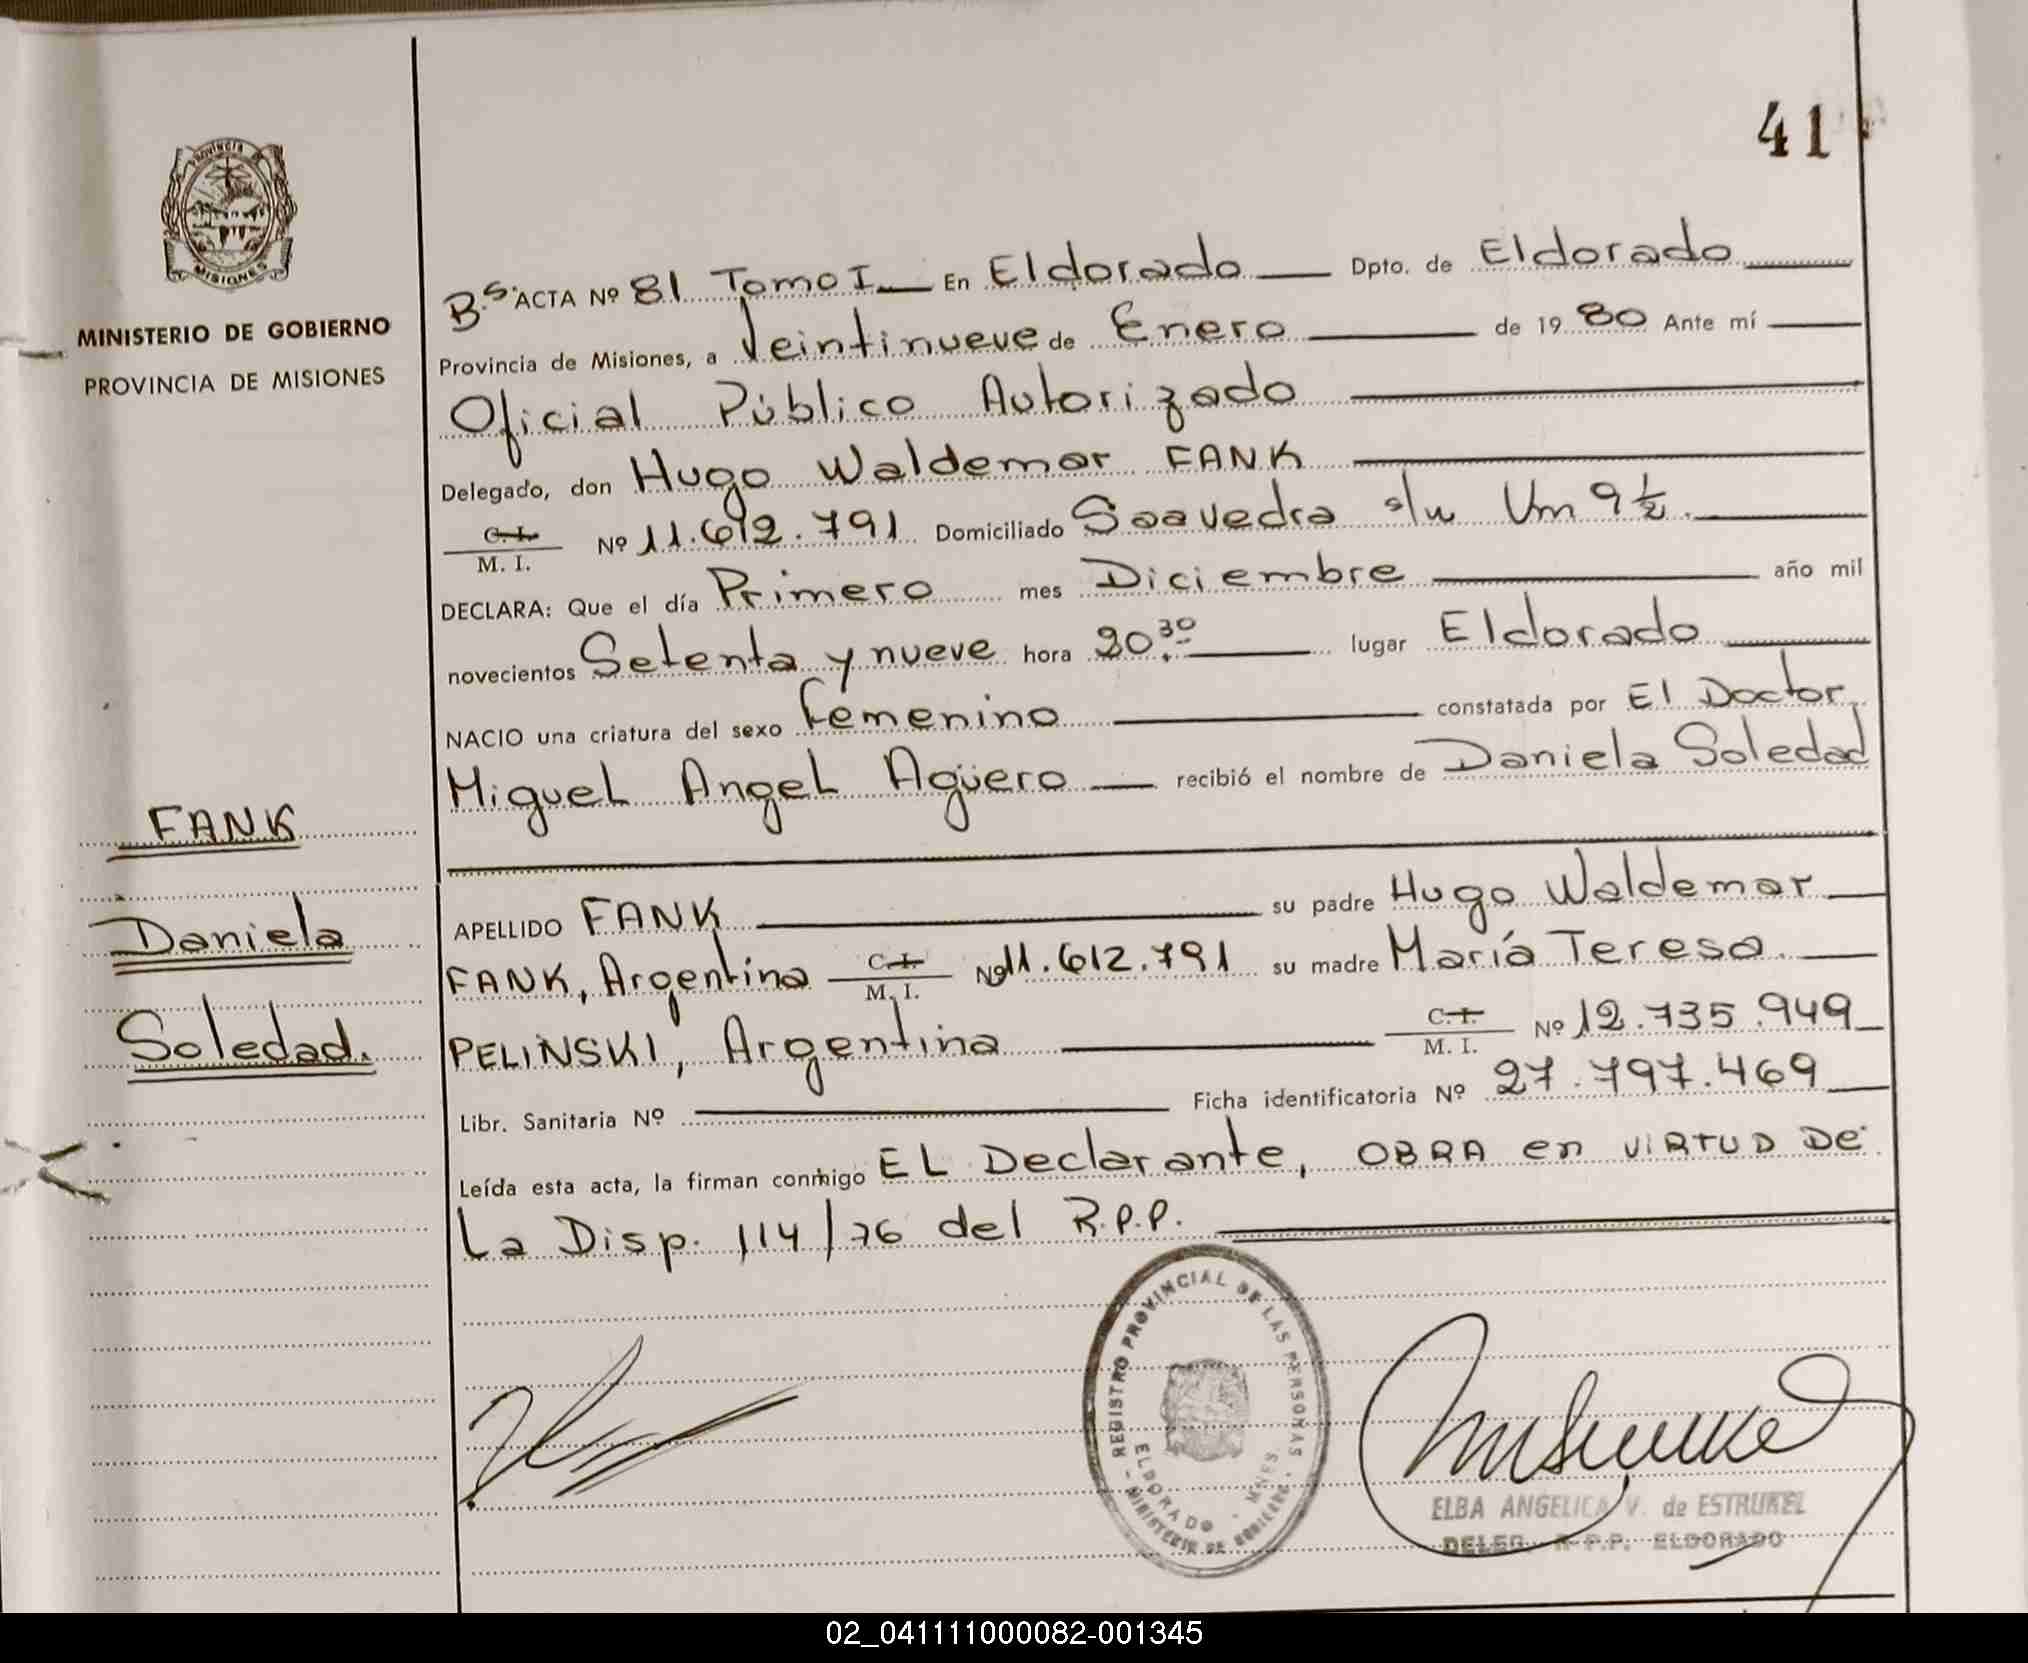 41
PROVINCIA DE
MISIONES
MINISTERIO DE GOBIERNO
PROVINCIA DE MISIONES
B.s. ACTA Nº 81 Tomo I — En Eldorado — Dpto. de Eldorado
Provincia de Misiones, a Veintinueve de Enero — de 19 80 Ante mí —
Oficial Público Autorizado
Delegado, don Hugo Waldemar FANK
C.I. / M. I. Nº 11.612.791 Domiciliado Saavedra s/n Km 9 ½.
DECLARA: Que el día Primero mes Diciembre — año mil
novecientos Setenta y nueve hora 20:30 — lugar Eldorado
NACIO una criatura del sexo Femenino — constatada por El Doctor
Miguel Angel Agüero — recibió el nombre de Daniela Soledad
FANK
Daniela
Soledad.
APELLIDO FANK — su padre Hugo Waldemar —
FANK, Argentina — C.I. / M. I. Nº 11.612.791 su madre María Teresa. —
PELINSKI, Argentina — C.I. / M. I. Nº 12.735.949
Libr. Sanitaria Nº — Ficha identificatoria Nº 27.797.469
Leída esta acta, la firman conmigo EL Declarante, OBRA en VIRTUD De
La Disp. 114/76 del R.P.P.
REGISTRO PROVINCIAL DE LAS PERSONAS
ELDORADO - MNES
MINISTERIO DE GOBIERNO
ELBA ANGELICA V. de ESTRUKEL
DELEG. R.P.P. ELDORADO
02_041111000082-001345